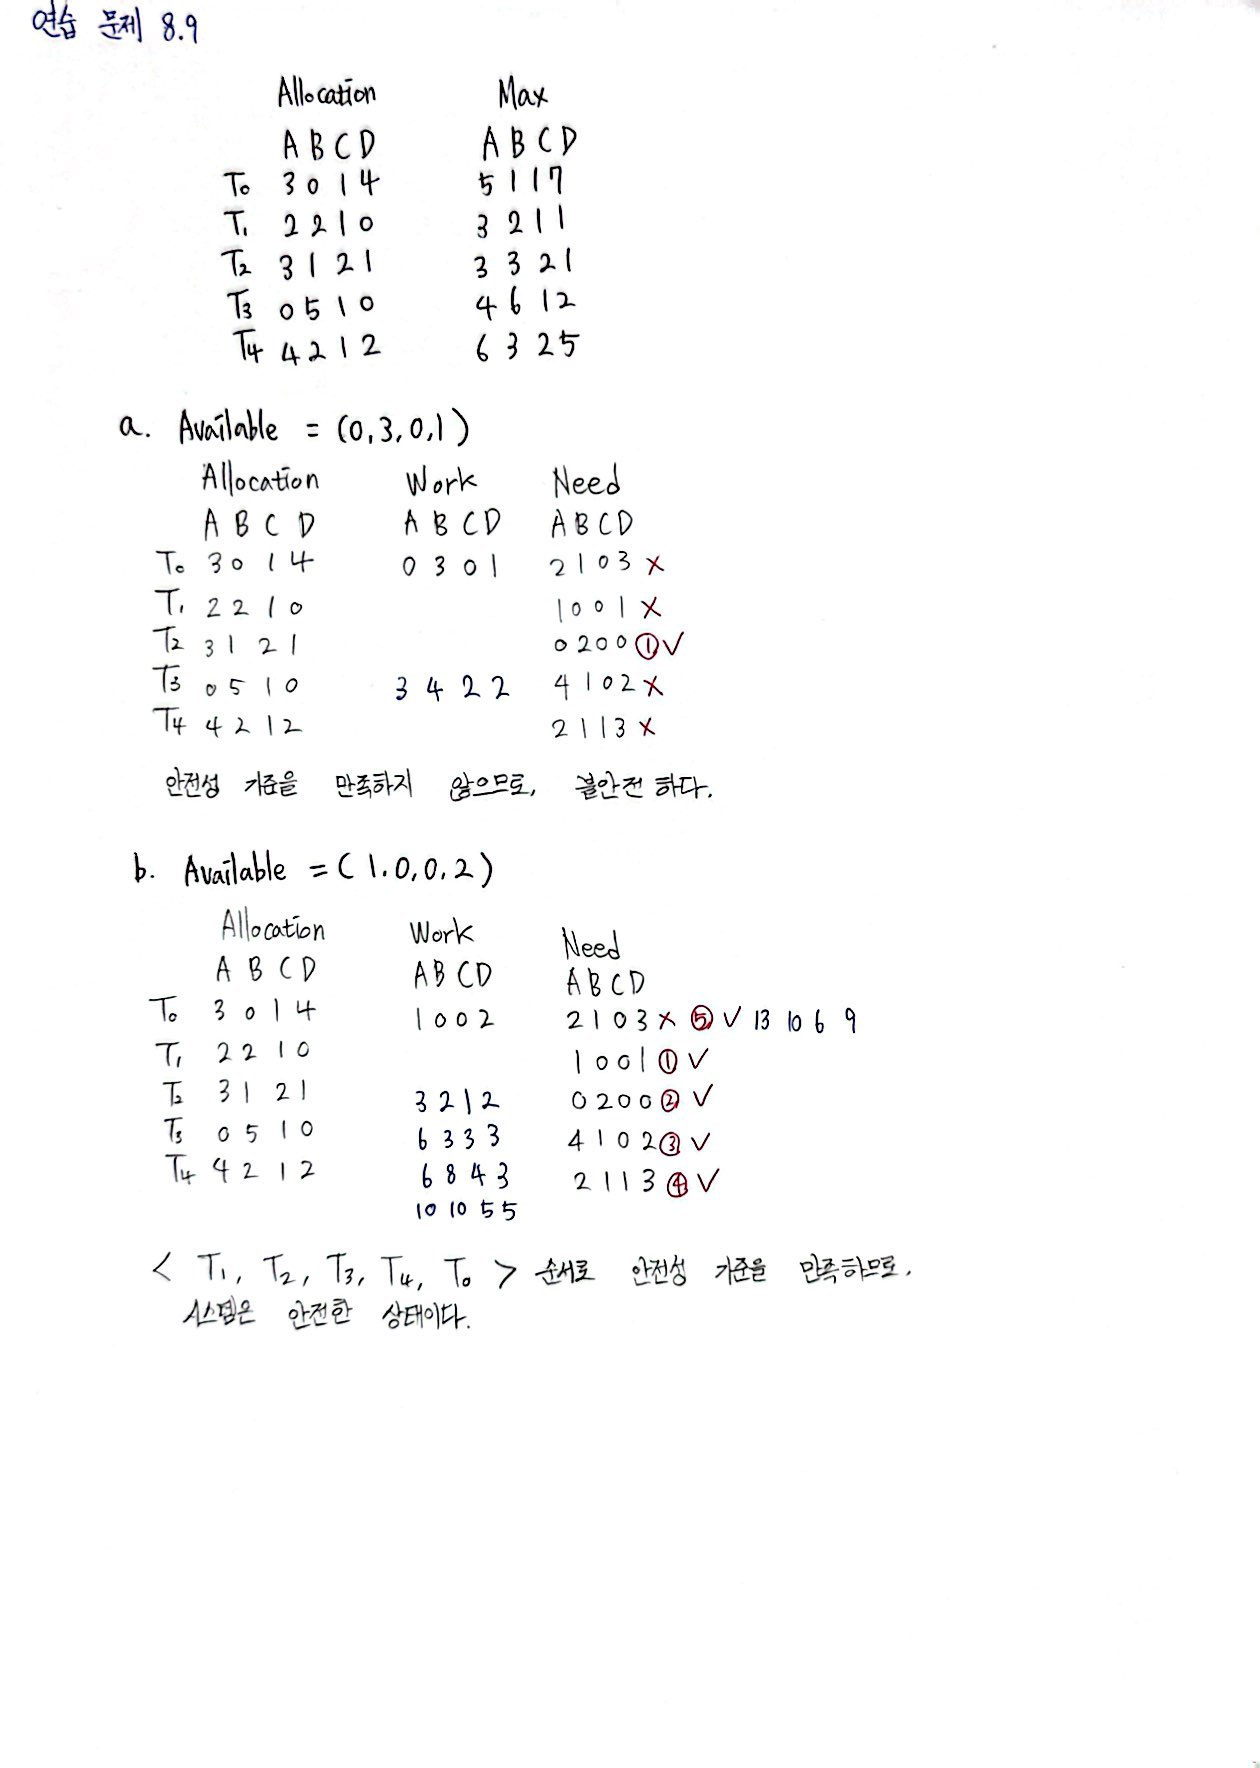 연습 문제 8.9
Allocation Max
A B C D A B C D
T₀ 3 0 1 4 5 1 1 7
T₁ 2 2 1 0 3 2 1 1
T₂ 3 1 2 1 3 3 2 1
T₃ 0 5 1 0 4 6 1 2
T₄ 4 2 1 2 6 3 2 5
a. Available = (0,3,0,1)
Allocation Work Need
A B C D A B C D A B C D
T₀ 3 0 1 4 0 3 0 1 2 1 0 3 ×
T₁ 2 2 1 0 1 0 0 1 ×
T₂ 3 1 2 1 0 2 0 0 ① ✓
T₃ 0 5 1 0 3 4 2 2 4 1 0 2 ×
T₄ 4 2 1 2 2 1 1 3 ×
안전성 기준을 만족하지 않으므로, 불안전 하다.
b. Available = (1.0,0,2)
Allocation Work Need
A B C D A B C D A B C D
T₀ 3 0 1 4 1 0 0 2 2 1 0 3 × ⑤ ✓ 13 10 6 9
T₁ 2 2 1 0 1 0 0 1 ① ✓
T₂ 3 1 2 1 3 2 1 2 0 2 0 0 ② ✓
T₃ 0 5 1 0 6 3 3 3 4 1 0 2 ③ ✓
T₄ 4 2 1 2 6 8 4 3 2 1 1 3 ④ ✓
10 10 5 5
< T₁, T₂, T₃, T₄, T₀ > 순서로 안전성 기준을 만족하므로,
시스템은 안전한 상태이다.